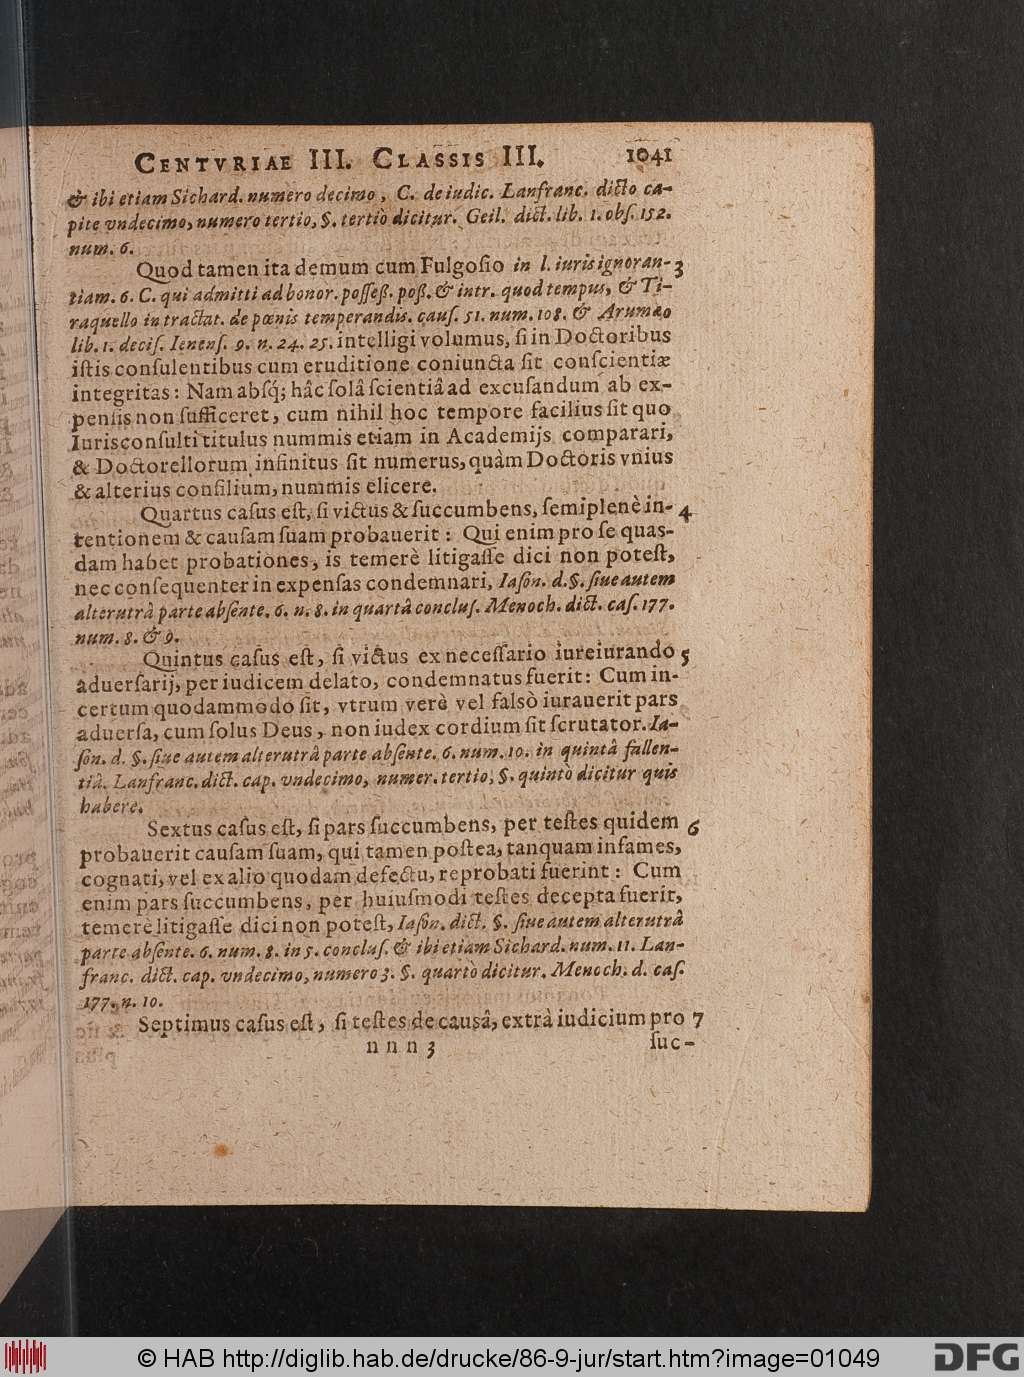 CENTVRIAE III. CLASSIS III. 1041
& ibi etiam Sichard. numero decimo, C. de iudic. Lanfranc. dicto ca-
pite vndecimo, numero tertio, §. tertiò dicitur. Geil. dict. lib. 1. obſ. 152.
num. 6.
Quod tamen ita demum cum Fulgoſio in l. iuris ignoran- 3
tiam. 6. C. qui admitti ad bonor. poſſeß. poß. & intr. quod tempus, & Ti-
raquello in tractat. de pœnis temperandis. cauſ. 51. num. 108. & Arumæo
lib. 1. deciſ. Ienenſ. 9. n. 24. 25. intelligi volumus, ſi in Doctoribus
iſtis conſulentibus cum eruditione coniuncta ſit conſcientiæ
integritas: Nam abſq́; hâc ſolâ ſcientiâ ad excuſandum ab ex-
penſis non ſufficeret, cum nihil hoc tempore facilius ſit quo
Iurisconſulti titulus nummis etiam in Academijs comparari,
& Doctorellorum infinitus ſit numerus, quàm Doctoris vnius
& alterius conſilium, nummis elicere.
Quartus caſus eſt, ſi victus & ſuccumbens, ſemiplenè in- 4
tentionem & cauſam ſuam probauerit: Qui enim pro ſe quas-
dam habet probationes, is temerè litigaſſe dici non poteſt,
nec conſequenter in expenſas condemnari, Iaſon. d. §. ſiue autem
alterutrâ parte abſente. 6. n. 8. in quartâ concluſ. Menoch. dict. caſ. 177.
num. 8. & 9.
Quintus caſus eſt, ſi victus ex neceſſario iureiurando 5
aduerſarij, per iudicem delato, condemnatus fuerit: Cum in-
certum quodammodo ſit, vtrum verè vel falsò iurauerit pars
aduerſa, cum ſolus Deus, non iudex cordium ſit ſcrutator. Ia-
ſon. d. §. ſiue autem alterutrâ parte abſente. 6. num. 10. in quintâ fallen-
tiâ. Lanfranc. dict. cap. vndecimo, numer. tertio, §. quintò dicitur quis
habere.
Sextus caſus eſt, ſi pars ſuccumbens, per teſtes quidem 6
probauerit cauſam ſuam, qui tamen poſtea, tanquam infames,
cognati, vel ex alio quodam defectu, reprobati fuerint: Cum
enim pars ſuccumbens, per huiuſmodi teſtes decepta fuerit,
temerè litigaſſe dici non poteſt, Iaſon. dict. §. ſiue autem alterutrâ
parte abſente. 6. num. 8. in 5. concluſ. & ibi etiam Sichard. num. 11. Lan-
franc. dict. cap. vndecimo, numero 3. §. quartò dicitur. Menoch. d. caſ.
177. n. 10.
Septimus caſus eſt, ſi teſtes de causâ, extrà iudicium pro 7
n n n 3 ſuc-
© HAB http://diglib.hab.de/drucke/86-9-jur/start.htm?image=01049
DFG